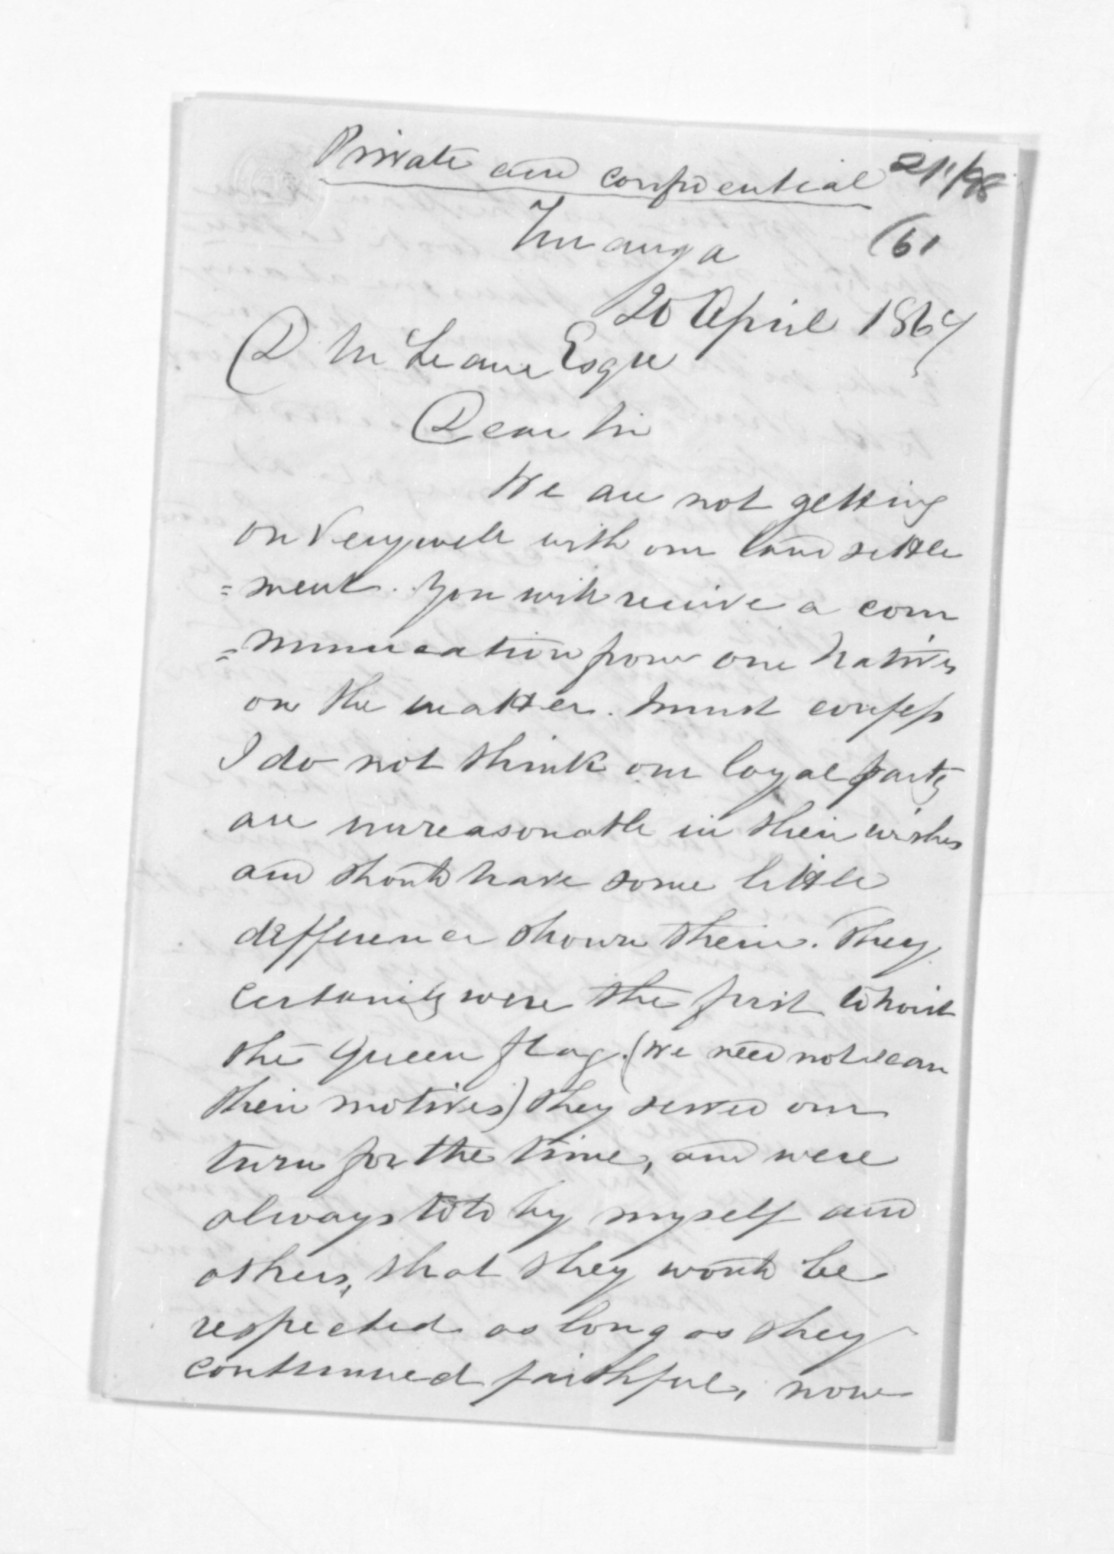 Private and confidential
Turanga
20 April 1867
D McLeane Esqre
Dear Sir
We are not getting
on very well with our land settle
=ment. You will receive a com
=munication from our Natives
on the matter. I must confess
I do not think our loyal party
are unreasonable in their wishes
and should have some little
defference shown them. They
certainly were the first to hoist
the Queen flag. (We need not scan
their motives) they served our
turn for the time, and were
always told by myself and
others, that they would be
respected as long as they
continued faithful, now